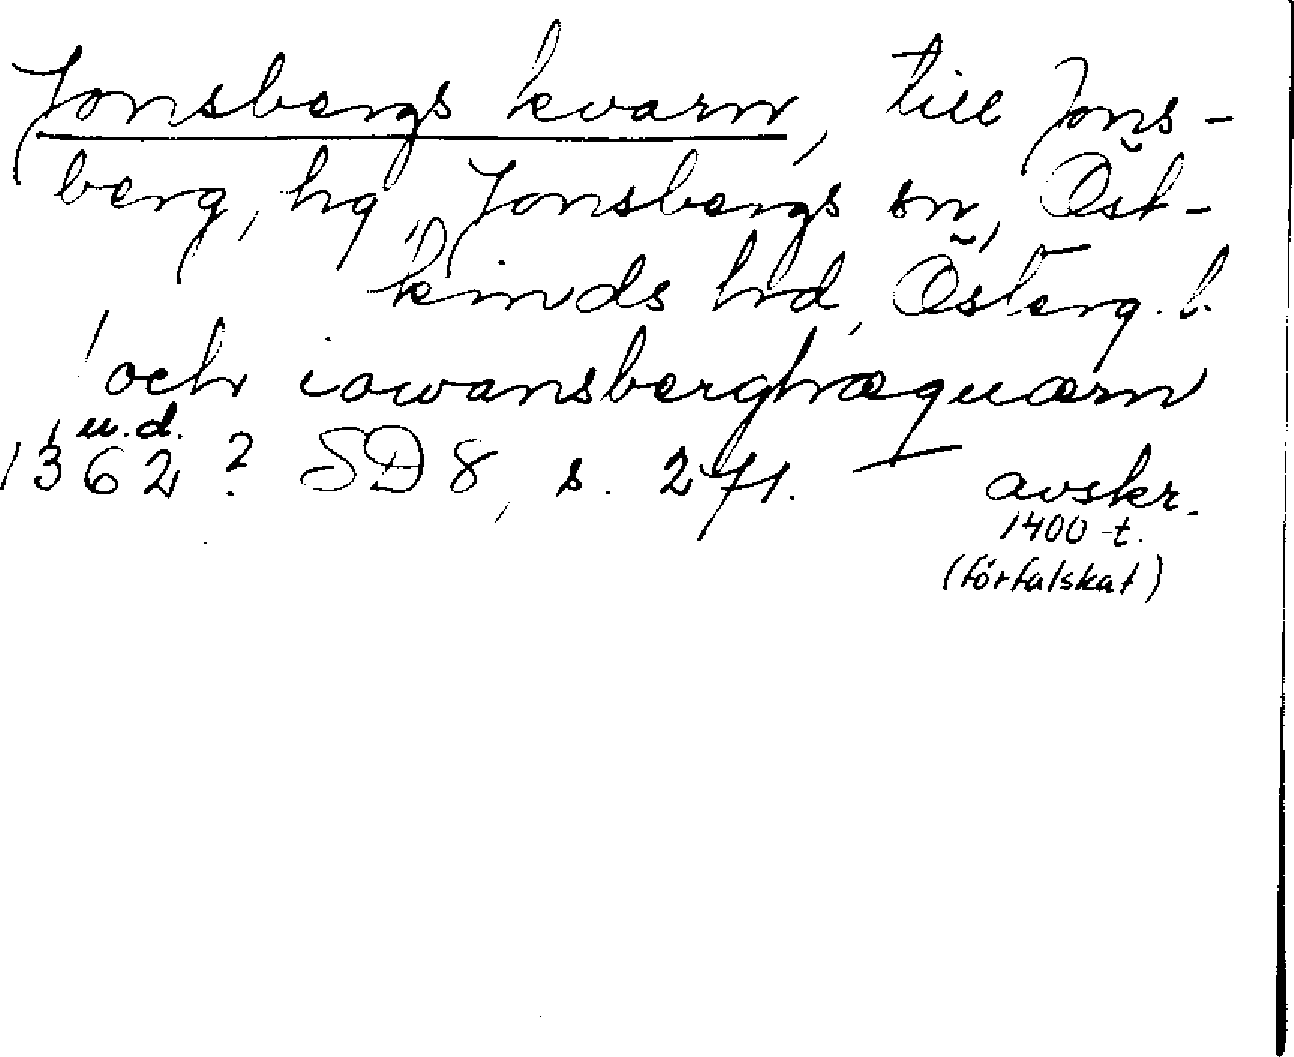 Jonsbergs kvarn, till Jons-
berg, hg, Jonsbergs sn, Öst-
kinds hd, Österg. l.
och iowansberghæquærn
u.d.
1362? SD 8, s. 271. avskr.
1400-t.
(förfalskat)